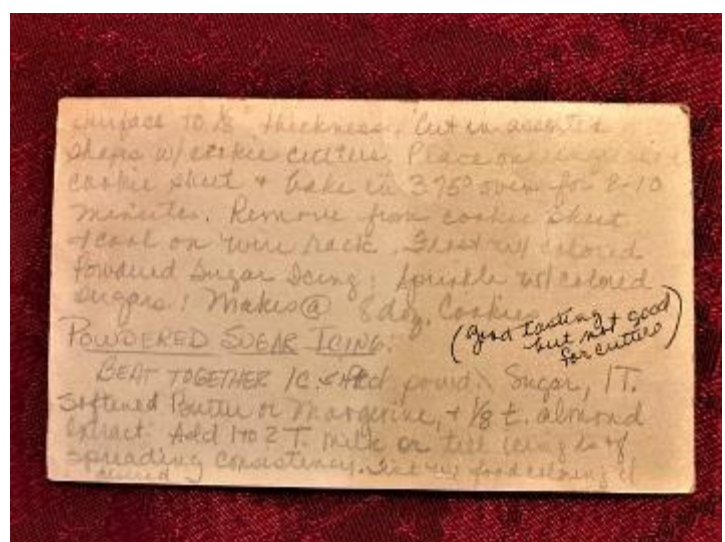 surface to 1/8" thickness. Cut in assorted
shapes w/ cookie cutters. Place on ungreased
cookie sheet + bake in 375° oven for 8-10
minutes. Remove from cookie sheet
+ cool on wire rack. Frost w/ colored
Powdered Sugar Icing; sprinkle w/ colored
sugars. Makes @ 8 doz. Cookies
(good tasting
but not good
for cutters)
POWDERED SUGAR ICING:
BEAT TOGETHER 1C. sifted powd. Sugar, 1T.
softened Butter or Margerine, + 1/8 t. almond
extract. Add 1 to 2 T. milk or till icing is of
spreading consistency. Tint w/ food coloring if
desired